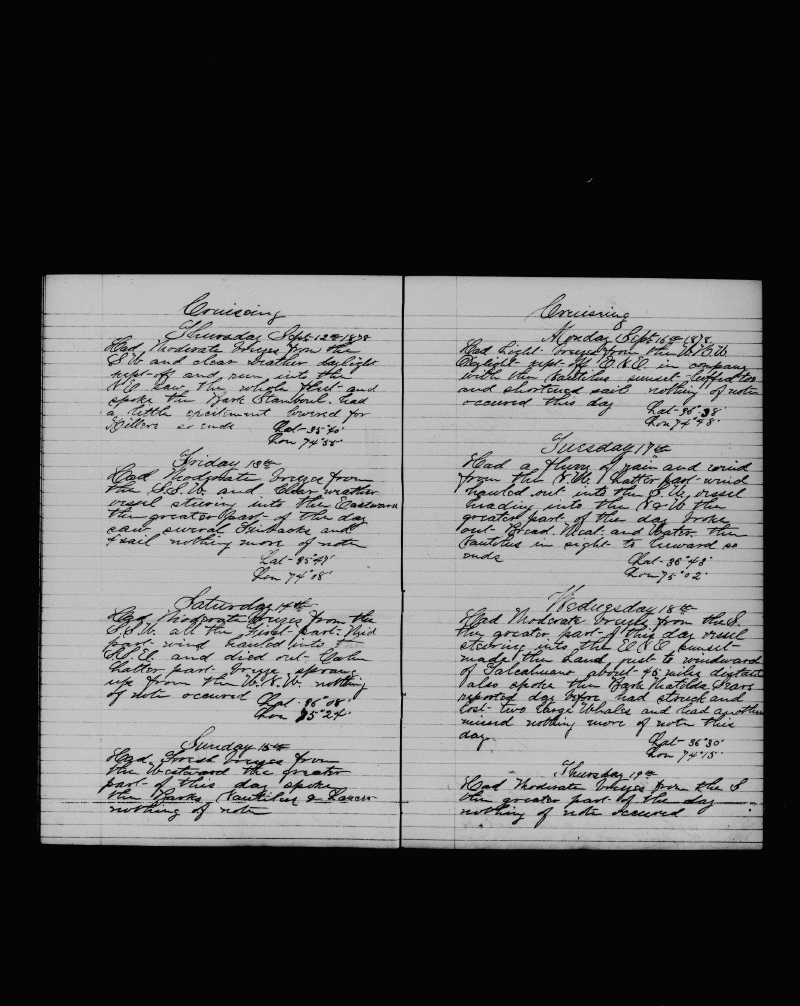 Cruising
Thursday Sept 12th 1878
Had Moderate breezes from the
S.W. and clear weather daylight
kept off and run into the
N.E. saw the whole fleet and
spoke the Bark Stamboul. had
a little excitement lowered for
Killers so ends Lat- 35°40'
Lon 74°55'
Friday 13th
Had Moderate breezes from
the S.S.W. and Clear weather
vessel steering into the Eastward
the greater part of the day
saw several Finbacks and
1 sail nothing more of note
Lat- 35°47'
Lon 74°08'
Saturday 14th
Had Moderate breezes from the
S.S.W. all the First-part- Mid
part wind hauled into
N.E. and died out- Calm
Latter part- breeze sprang
up from the W.N.W. nothing
of note occured Lat- 36°08'
Lon 75°24'
Sunday 15th
Had Fresh breezes from
the Westward the greater
part of this day spoke
the Barks Nautilus & Lancer
nothing of note
Cruising
Monday Sept 16th 1878
Had Light- breezes from the
Daylight kept off E.N.E. in company
with the Nautilus sunset luffed too
and shortened sail nothing of note
occured this day
Lat- 36°38'
Lon 74°48'
Tuesday 17th
Had a flurry of rain and wind
from the N.W. Latter part- wind
hauled out into the S.W. vessel
heading into the the
greater part of the day broke
out Bread. Meat. and Water. the
Nautilus in sight to leeward so
ends Lat- 36°43'
Lon 75°02'
Wednesday 18th
Had Moderate breezes from the S.
the greater part of this day vessel
steering into the sunset-
made the Land just to windward
of Talcahuano about- 45 miles distant
also spoke the Bark Matilda Sears
reported day before had struck and
lost- two large Whales and had another
missed nothing more of note this
day. Lat- 36°30'
Lon 74°15'
Thursday 19th
Had Moderate breezes from the S
the greater part of the day
nothing of note occured